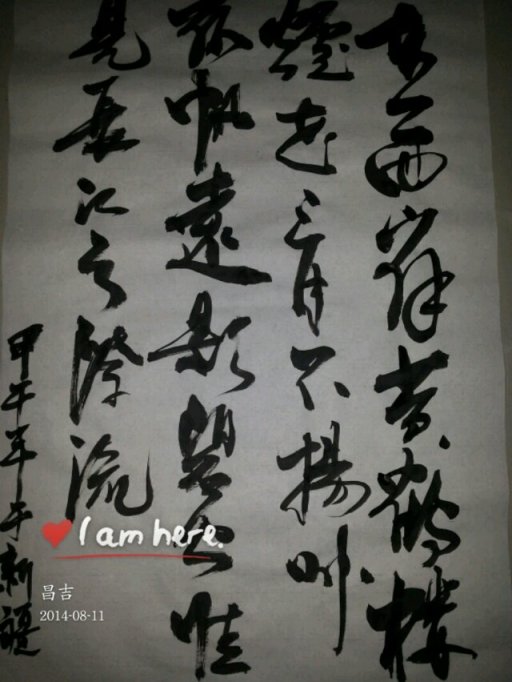 故人西辞黄鹤楼
煙花三月下揚州
孤帆遠影碧空惟
見長江天際流
甲午年于新疆
I am here.
昌吉
2014-08-11